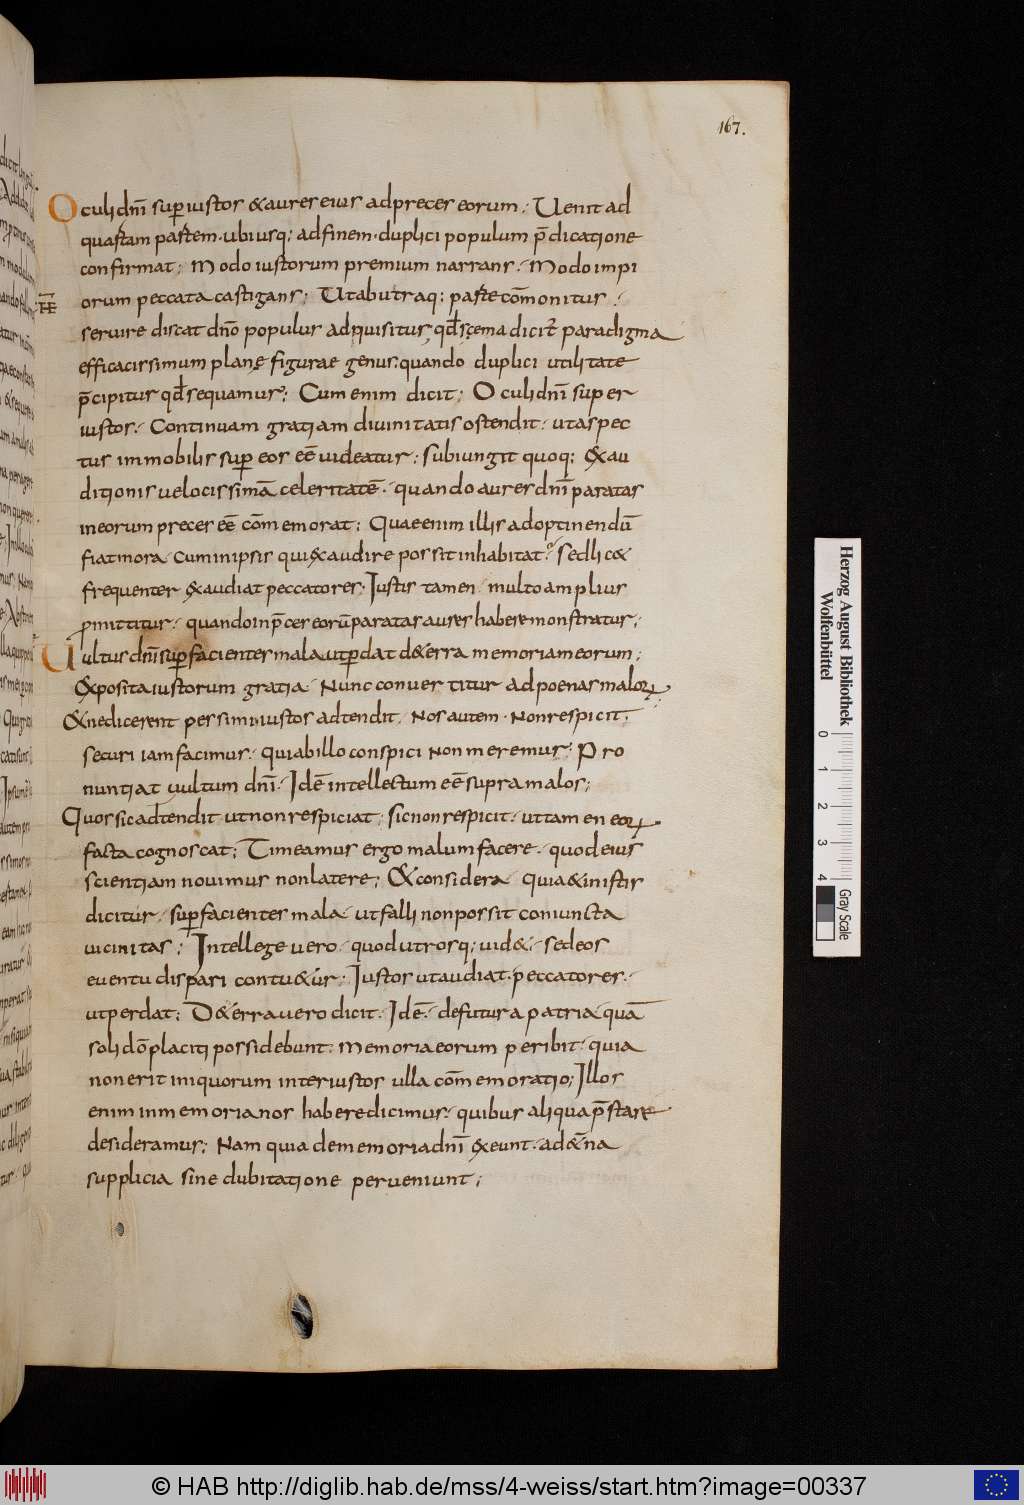 167.
Oculi dnī sup iustos & aures eius ad preces eorum; Uenit ad
quartam partem. ubi usq; ad finem. duplici populum p̄dicatione
confirmat; Modo iustorum premium narrans. Modo impi
orum peccata castigans; Ut ab utraq; parte cōmonitus.
seruire discat dnō populus adquisitus, qđ scema dicit paradigma
efficacissimum planę figurae genus, quando duplici utilitate
p̄cipitur qđ sequamur; Cum enim dicit; Oculi dnī super
iustos. Continuam gratiam diuinitatis ostendit. ut aspec
tus immobilis sup eos eē uideatur; subiungit quoq; exau
ditionis uelocissimā celeritatē. quando aures dnī paratas
in eorum preces eē cōmemorat; Quae enim illis adoptinendū
fiat mora. cum in ipsis qui exaudire possit inhabitat? sed lic&
frequenter exaudiat peccatores. Iustis tamen multo amplius
promittitur. quando in p̄ces eorū paratas aures habere monstratur;
Uultus dnī sup facientes mala ut pdat de terra memoriam eorum;
Exposita iustorum gratia. Nunc conuertitur ad poenas malorꝝ
& ne dicerent pessimi iustos adtendit. Nos autem. Non respicit.
securi iam facimus. quia b illo conspici non meremur; Pro
nuntiat uultum dnī. Idē intellectum eē supra malos;
Quos sic adtendit ut non respiciat; sic non respicit. ut tamen eorꝝ
facta cognoscat; Timeamus ergo malum facere. quod eius
scientiam nouimus non latere; & considera quia & in istis
dicitur. sup facientes mala ut falli non possit coniuncta
uicinitas; Intellege uero quod utrosq; uid&. sed eos
euentu dispari contu&ur; Iustos ut audiat. peccatores.
ut perdat; D&erra uero dicit. Idē. de futura patria quā
soli dō placiti possidebunt. Memoria eorum peribit. quia
non erit iniquorum inter iustos ulla cōmemoratio; Illos
enim in memoria nos habere dicimus. quibus aliqua p̄stare
desideramus; Nam quia de memoria dnī exeunt. ad &na
supplicia sine dubitatione perueniunt;
Herzog August Bibliothek
Wolfenbüttel
0 1 2 3 4
Gray Scale
© HAB http://diglib.hab.de/mss/4-weiss/start.htm?image=00337